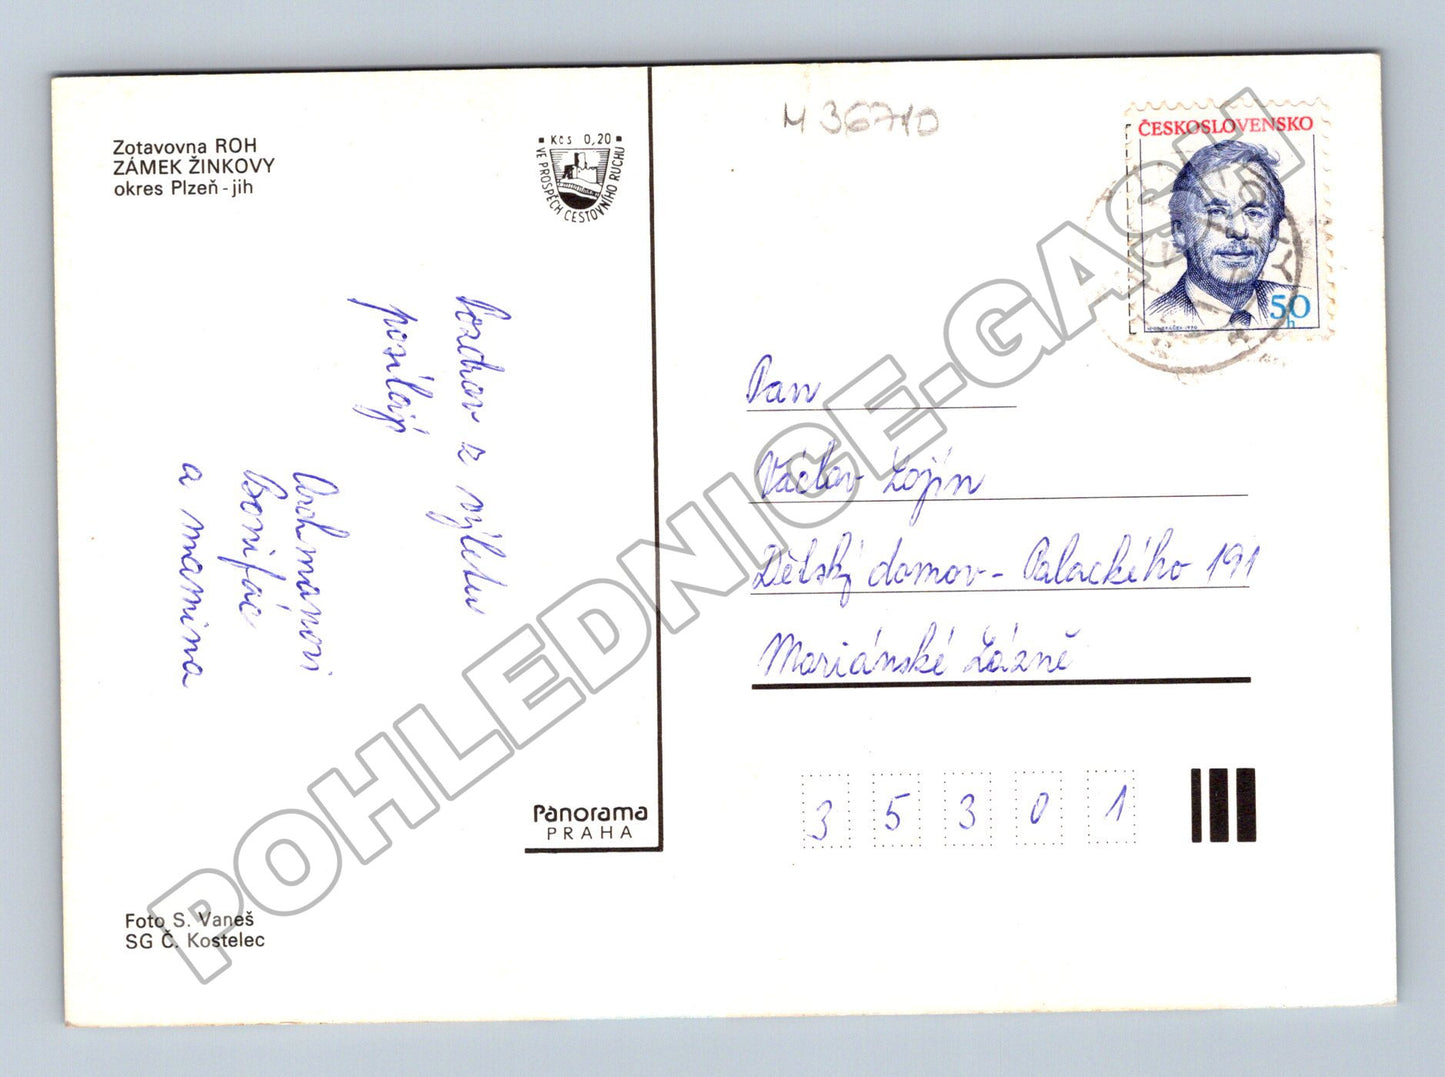 Zotavovna ROH
ZÁMEK ŽINKOVY
okres Plzeň - jih
Kčs 0,20
VE PROSPĚCH CESTOVNÍHO RUCHU
M 36710
ČESKOSLOVENSKO
50
h
Pozdrav z výletu
posílají
Bonifác
a mamina
Pan
Václav Lojín
Dětský domov - Palackého 191
Mariánské Lázně
35301
Panorama
PRAHA
Foto S. Vaneš
SG Č. Kostelec
POHLEDNICE-GASH